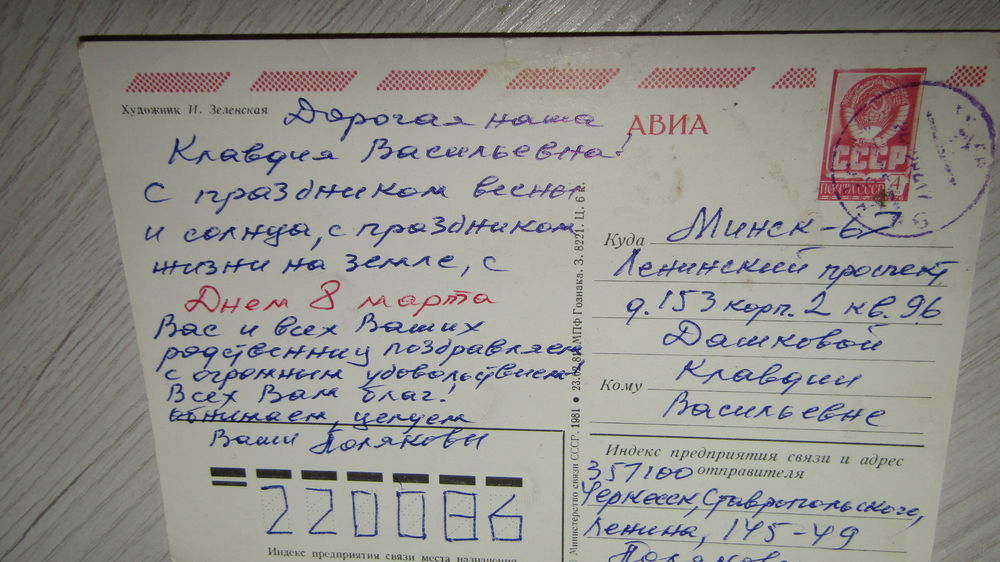 Художник И. Зеленская
Дорогая наша
Клавдия Васильевна!
С праздником весны
и солнца, с праздником
жизни на земле, с
Днем 8 марта
Вас и всех Ваших
родственниц поздравляем
с огромным удовольствием,
Всех Вам благ!
обнимаем, целуем
Ваши Поляковы
220086
Индекс предприятия связи места назначения
Министерство связи СССР. 1981 • 23.02.81. МПФ Гознака. З. 8221. Ц. 6 к.
АВИА
СССР
ПОЧТА СССР 4
Куда Минск-67
Ленинский проспект,
д. 153 корп. 2 кв. 96
Дашковой
Кому Клавдии
Васильевне
Индекс предприятия связи и адрес
357100 отправителя
Черкесск, Ставропольского,
Ленина, 145-49